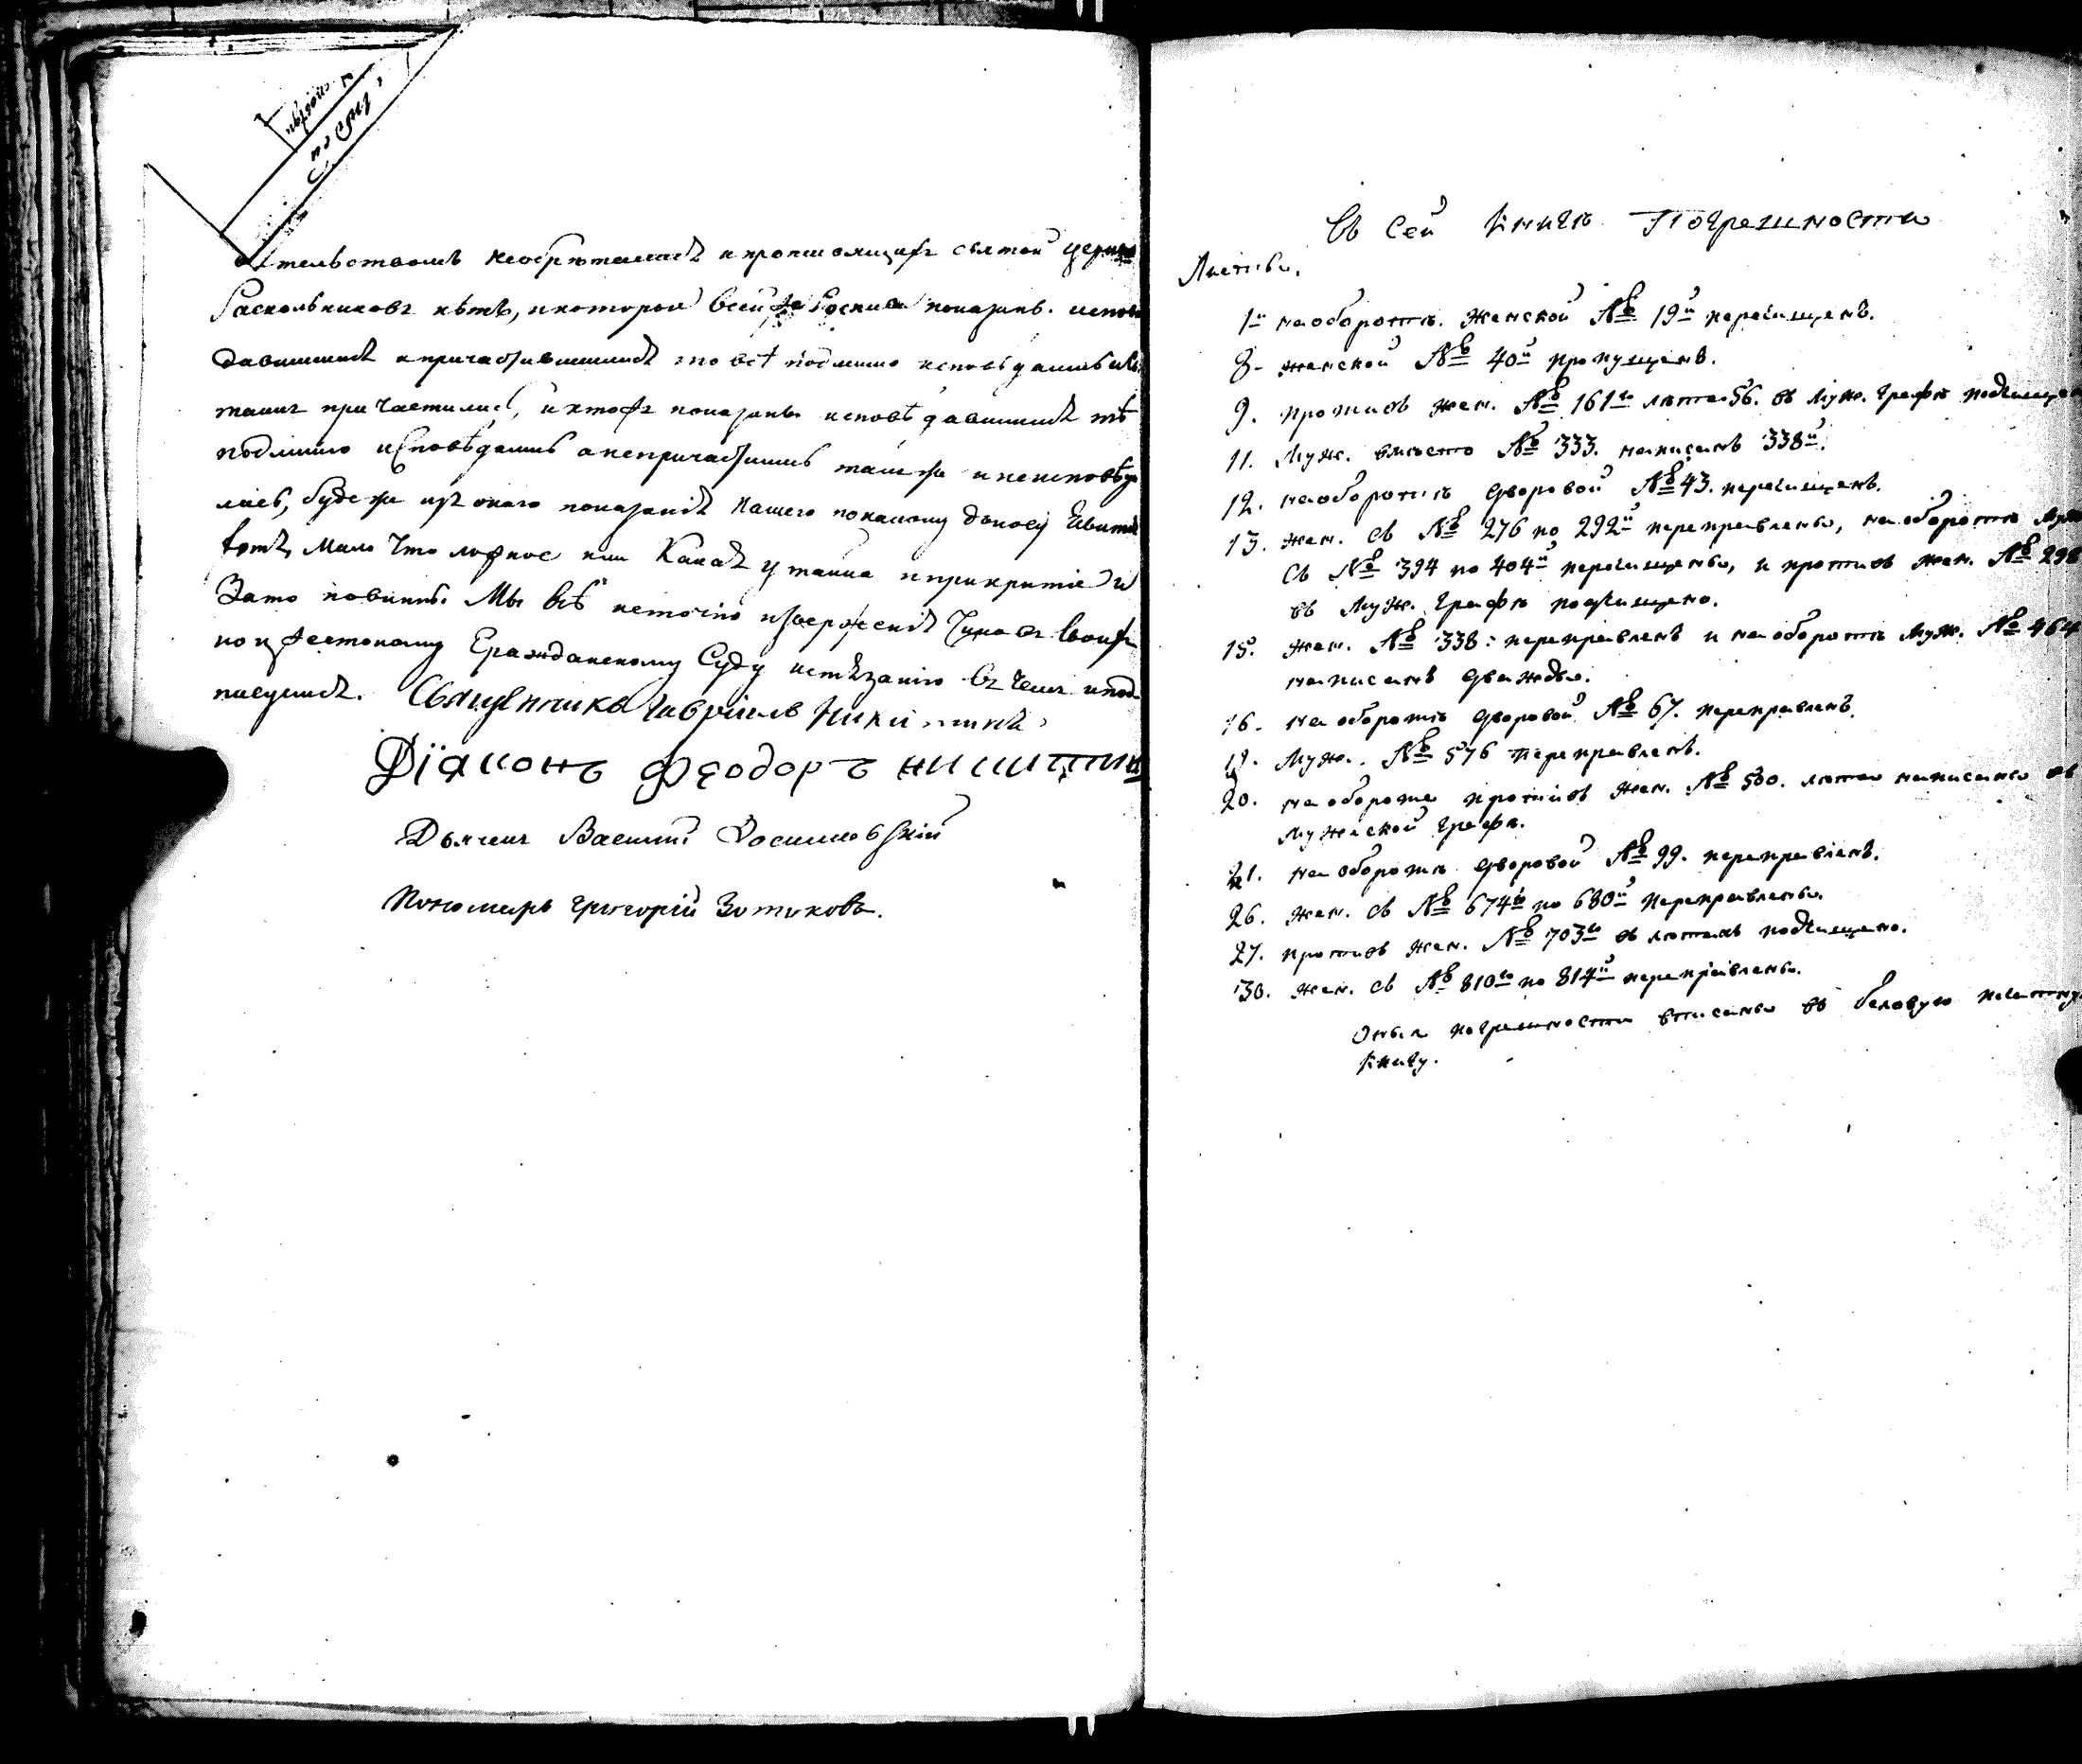 тельствомъ необретаемся и противящихся святой церкви
Раскольниковъ нѣтъ, и которои всей же Росписи показаны испове
давшимися и причастившимися то всѣ подлинно исповѣдались и
таинъ причастились, и ктожъ показаны исповѣдавшимися тѣ
подлинно исповѣдались а непричастились также и неисповѣда
лись, буде же изъ оного показания нашего по какому доносу явит
Мало что ложное или Какая утайка и прикрытіе и
Зато повинны Мы всѣ неточїю изверженія Чиновъ своихъ
но и жестокому Гражданскому Суду истязанію въ чемъ и под
писуемся. Священникъ Гавріилъ Никитинъ
Діаконъ Феодоръ никитин
Дьячекъ Василий
Пономарь григорій Зотиковъ.
Въ Сей Книгѣ Погрешности
Листы.
1й наоборотѣ. Женской № 19й перечищенъ.
8. женской № 40й пропущенъ.
9. противъ жен. № 161го лѣта 56. въ Муж. графѣ подчищен
11. Муж. вместо № 333. написанъ 338й.
12. наоборотѣ дворовой № 43. перечищенъ.
13. жен. съ № 276 по 292й переправлены, наоборотѣ Муж
Съ № 394 по 404й перечищены, и противъ жен. № 298
въ Муж. графѣ подчищено.
15. жен. № 338: переправленъ и наоборотѣ Муж. № 464
написанъ дважды.
16. на оборотѣ дворовой № 67. переправленъ.
19. Муж. № 576 переправленъ.
20. на обороте противъ жен. № 500. лѣта написаны въ
мужеской графѣ.
21. на оборотѣ дворовой № 99. переправленъ.
26. жен. съ № 674го по 680й переправлены.
27. противъ жен. № 703го въ летахъ подчищено.
30. жен. съ № 810го по 814й переправлены.
Оныя погрешности вписаны въ беловую печатну
Книгу.